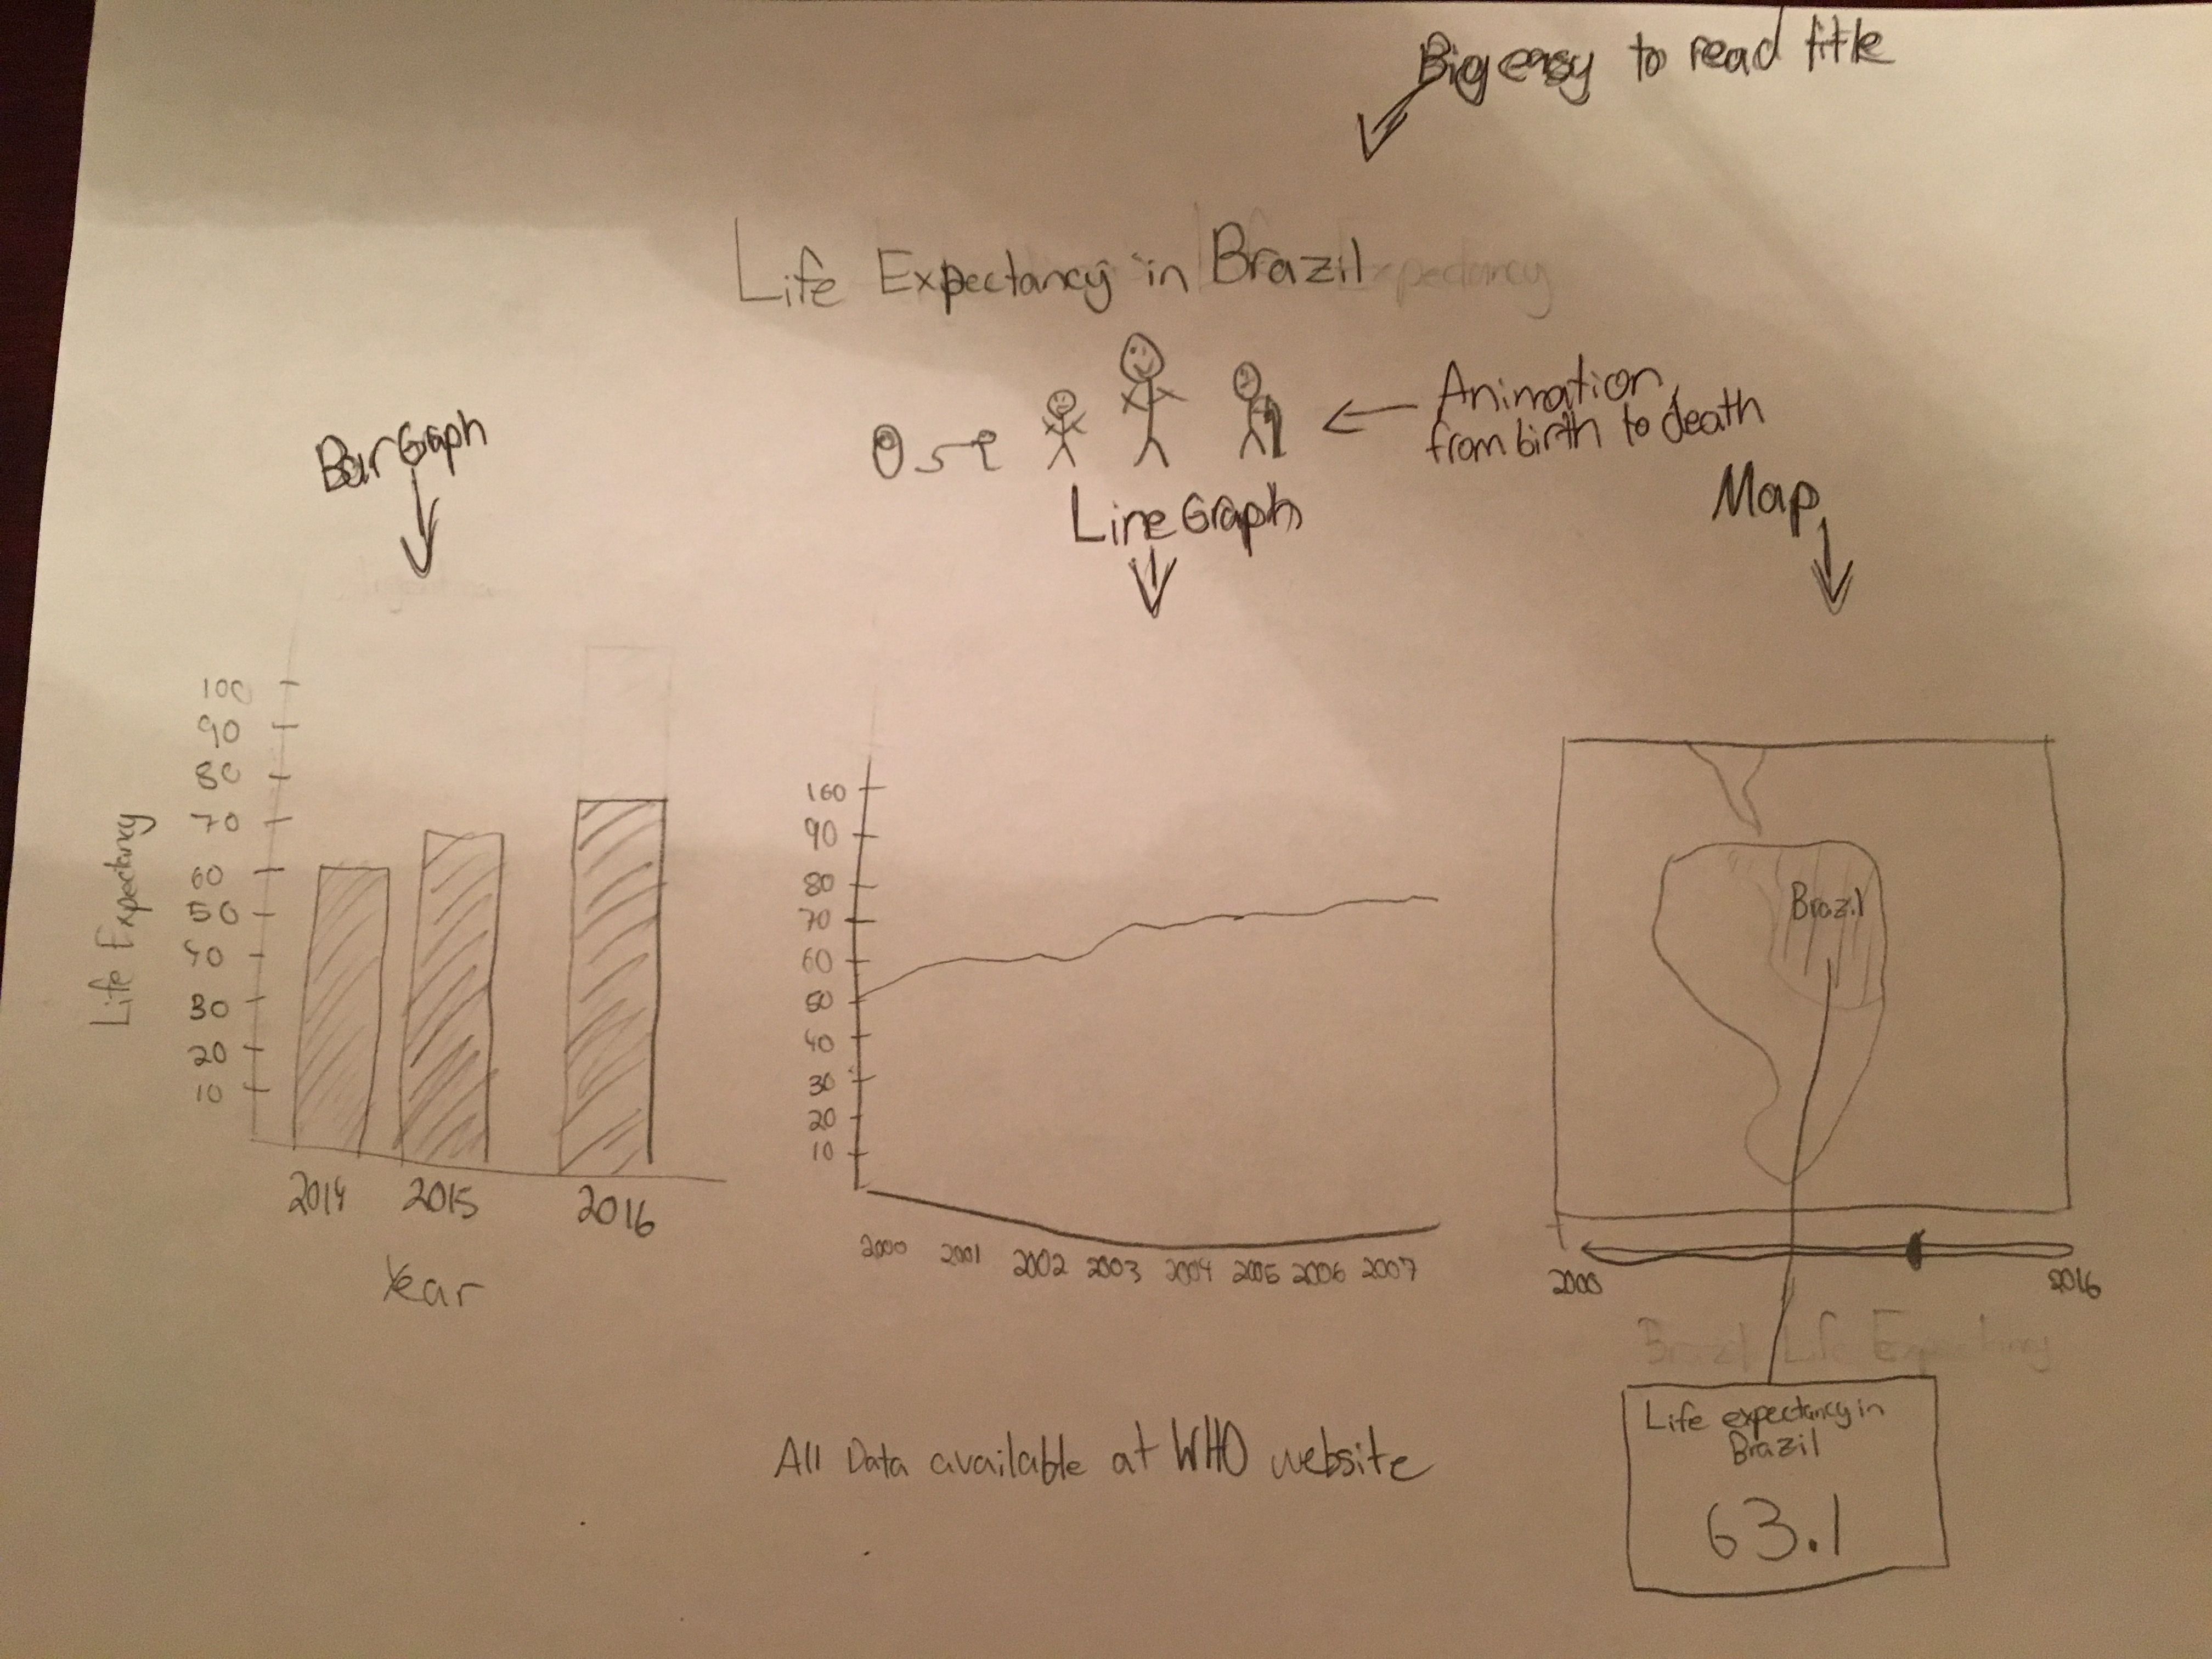 Big easy to read title
Life Expectancy in Brazil
Animation
from birth to death
Bar Graph
Line Graph
Map
Life Expectancy
100
90
80
70
60
50
40
30
20
10
2014 2015 2016
Year
100
90
80
70
60
50
40
30
20
10
2000 2001 2002 2003 2004 2005 2006 2007
Brazil
2000 2016
Life expectancy in
Brazil
63.1
All Data available at WHO website